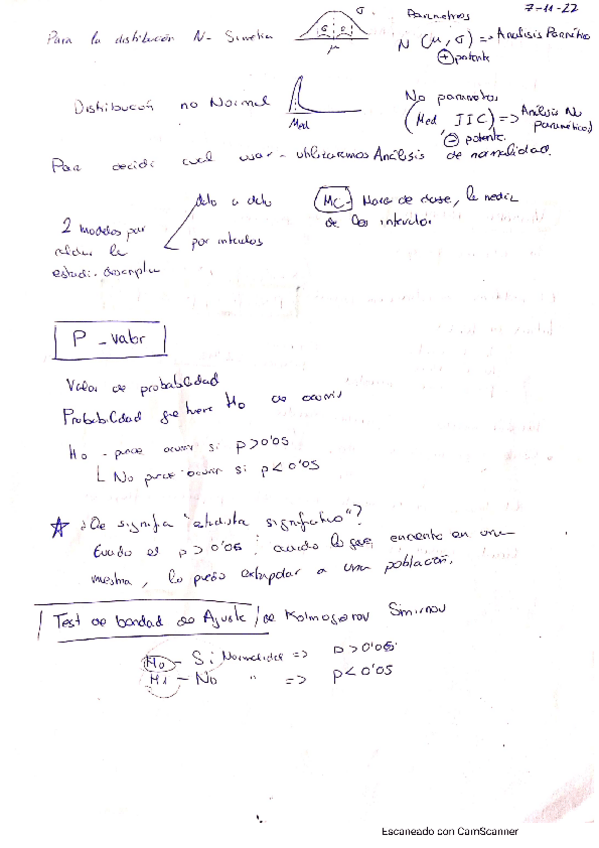 7-11-22
Para la distribución N- Simetica
σ
μ
Parametros
N (μ, σ) => Analisis Parmetrico
+ potente
Distribución no Normal
Med
No parametros
(Med IIC) => Análisis No parametrico)
- potente.
Para decidi cual usar - utilizaremos Análisis de normalidad.
2 modelos par
la
dato a dato
por intervalos
MC- Marca de clase, la media
de los intervalos
P - valor
Valor de probabilidad
Probabilidad que tiene Ho de ocurrir
Ho - puede ocurrir si p>0'05
L No puede ocurrir si p<0'05
¿Qe significa "estadista significativo"?
Cuado es p > 0'05 : cuando lo que encuentro en una
mestra, lo puedo extrapolar a una población.
Test de bondad de Ajuste / de Kolmogorov Smirnov
Ho - Si Normalidad => p>0'05
H1 - No " => p<0'05
Escaneado con CamScanner